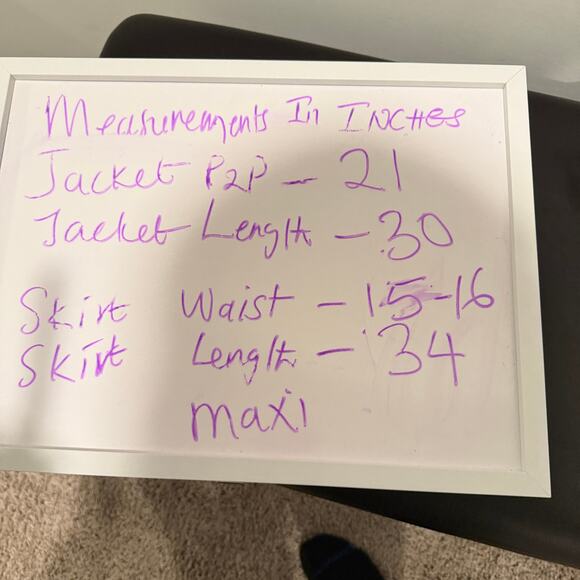 Measurements In INCHES
Jacket P2P - 21
Jacket Length - 30
Skirt Waist - 15-16
Skirt Length - 34
maxi